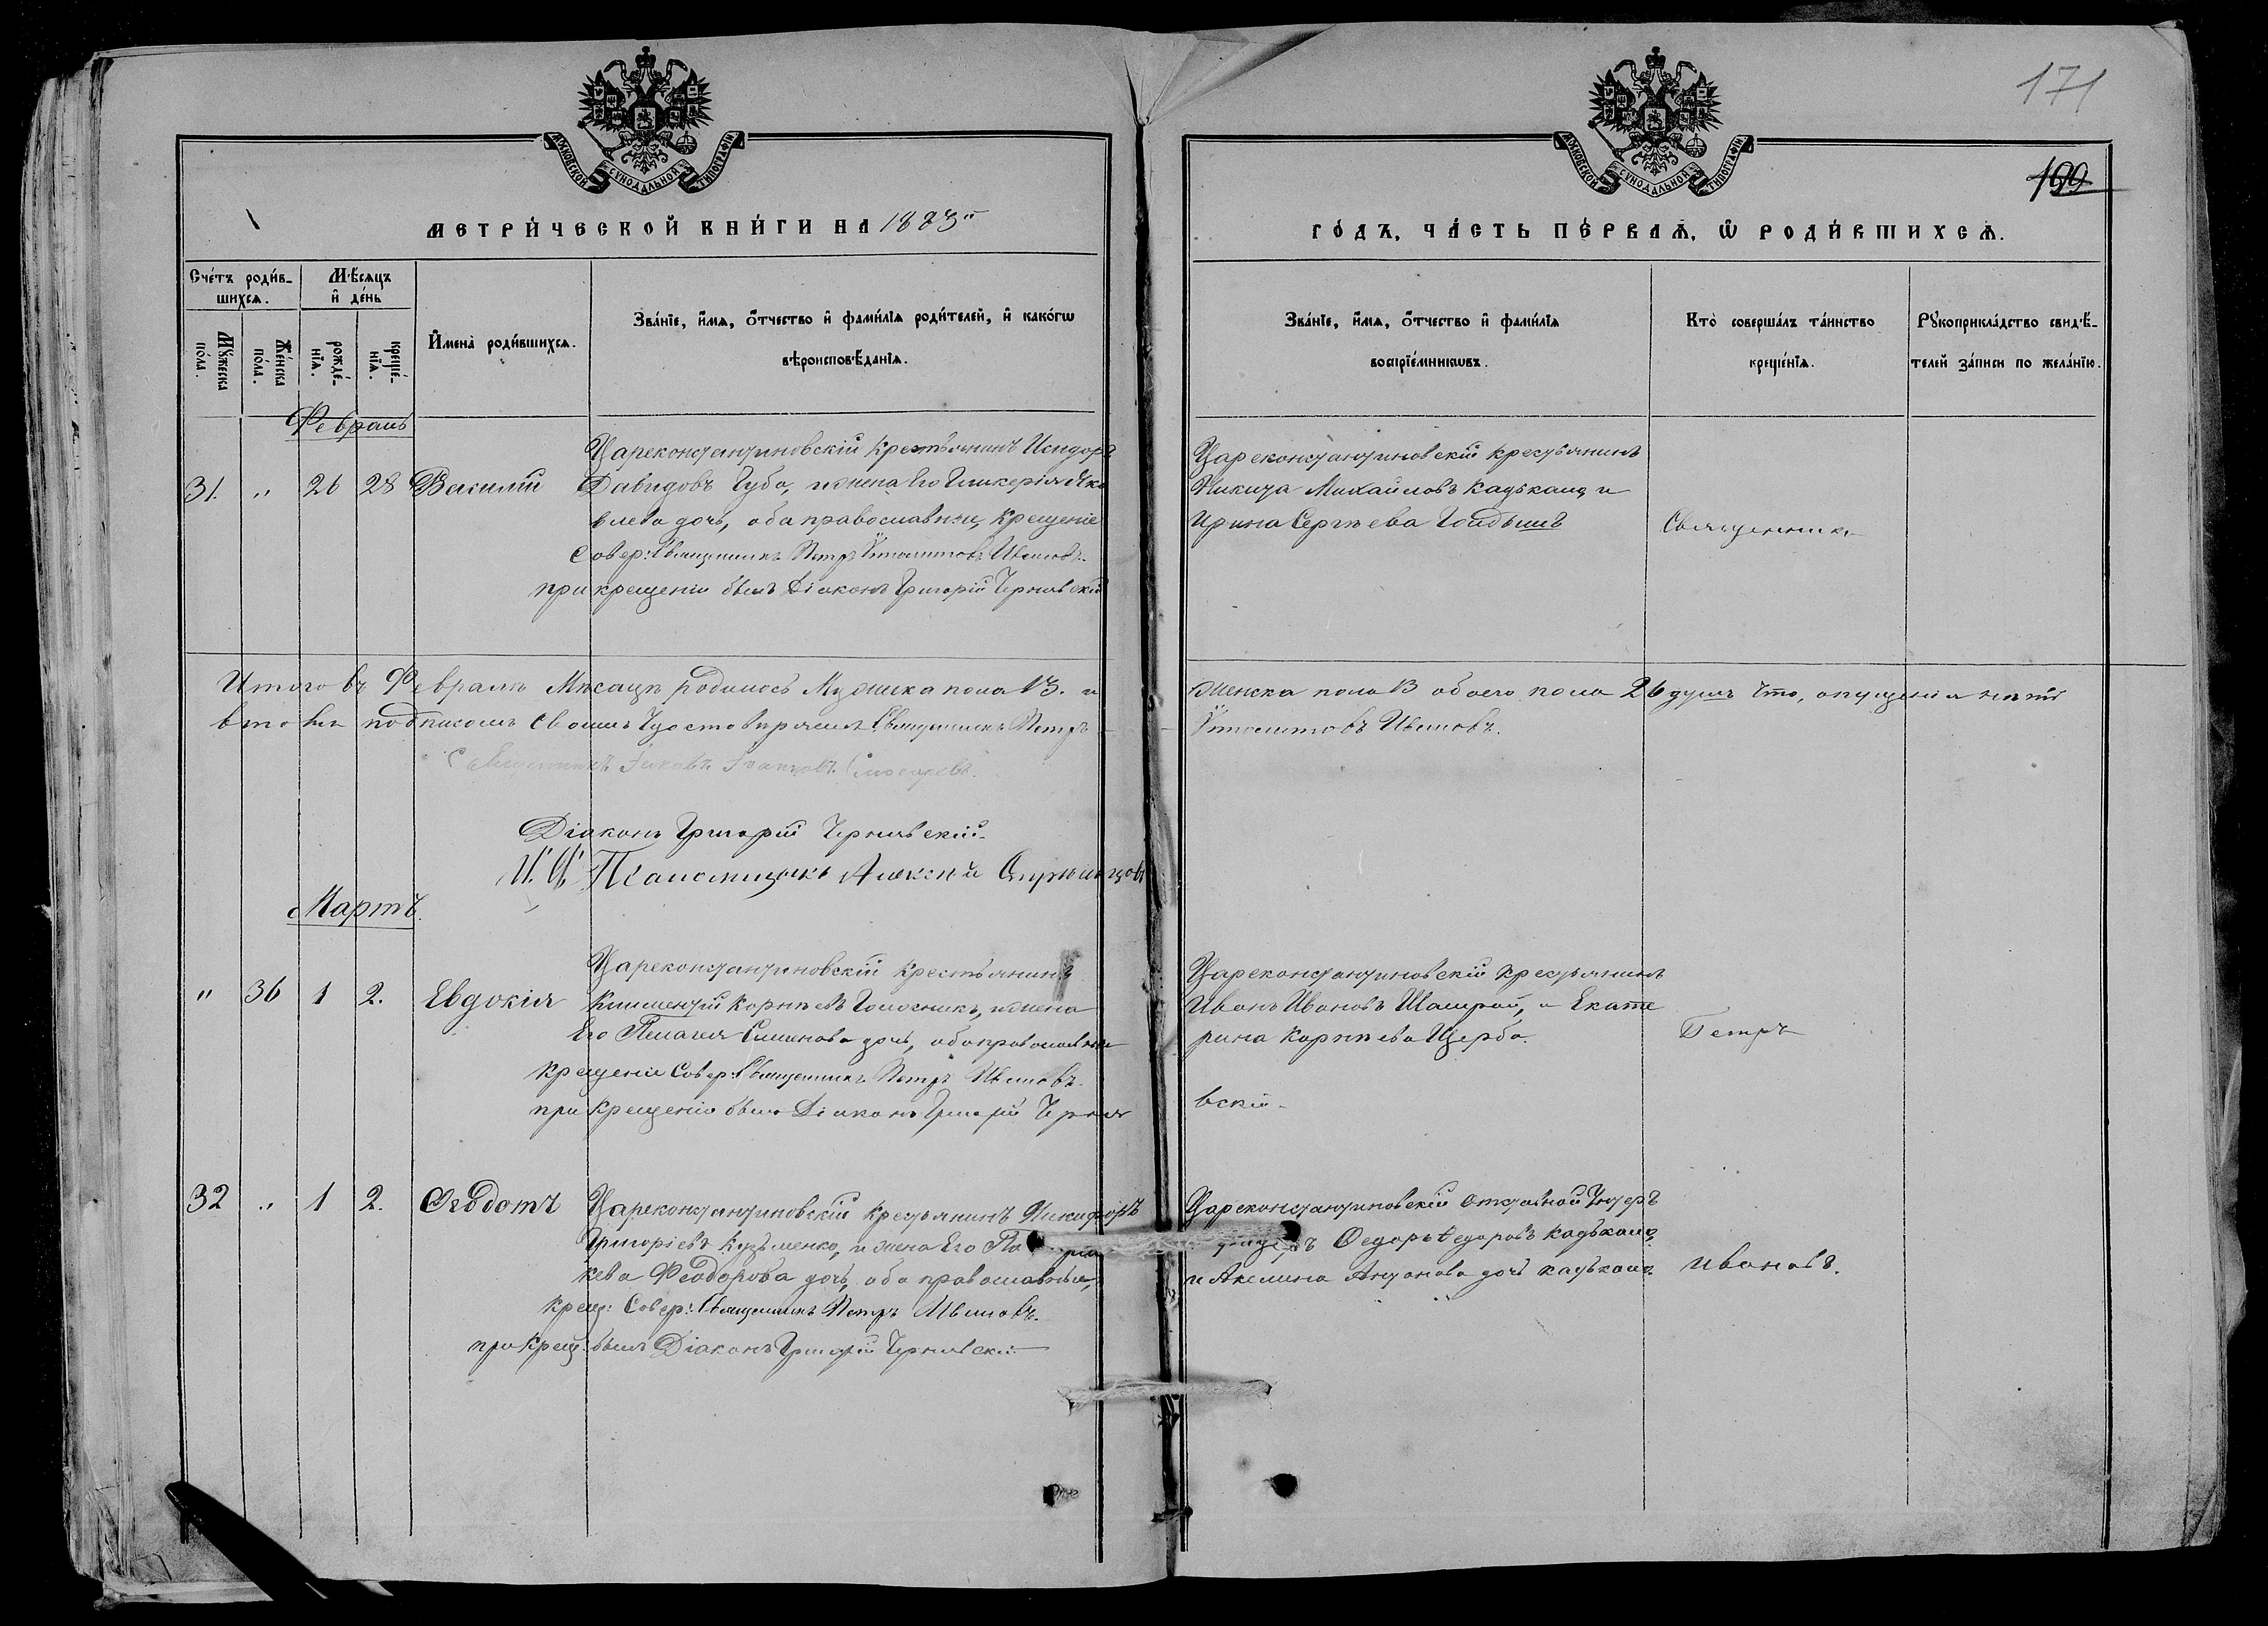 171
199
МОСКОВСКОЙ СѴНОДАЛЬНОЙ ТИПОГРАФІИ
МОСКОВСКОЙ СѴНОДАЛЬНОЙ ТИПОГРАФІИ
МЕТРИ́ЧЕСКОЙ КНИ́ГИ НА 1883
ГО́ДЪ, ЧА́СТЬ ПЕ́РВАѦ, Ѡ҆ РОДИ́ВШИХСѦ.
Сче́тъ роди́в-
шихсѧ.
Мꙋ́жеска по́ла.
Же́нска по́ла.
Мѣ́сѧцъ
и҆ де́нь
рожде́-нїѧ.
креще́-нїѧ.
И҆мена̀ роди́вшихсѧ.
Зва́нїе, и҆́мѧ, ѻ҆́тчество и҆ фами́лїѧ роди́телей, и҆ како́гѡ
вѣроисповѣ́данїѧ.
Зва́нїе, и҆́мѧ, ѻ҆́тчество и҆ фами́лїѧ
воспрїе́мникѡвъ.
Кто̀ соверша́лъ та́инство
креще́нїѧ.
Рꙋкоприкла́дство свидѣ́-
телей за́писи по жела́нїю.
Февраль
31. " 26 28 Василий
Цареконстантиновскій крестьянинъ Исидоръ
Давидовъ Губа, и жена Его Гликерія Яко
влева дочь, оба православны, Крещеніе
Совер: Священникъ Петръ Ивановъ.
при крещеніи былъ Діаконъ Григорій Чернявскій
Цареконстантиновскій крестьянинъ
Никита Михайловъ Кадькало и
Ирина Сергѣева
Священникъ
Итого въ Февралѣ Мѣсяцѣ родилось Мужеска пола 13. и
женска пола 13 обоего пола 26 душъ Что, опущенія нѣтъ
въ томъ подписомъ Своимъ Удостовѣряемъ Священникъ Петръ
Ивановъ.
Священникъ Іаковъ Іоанновъ
Діаконъ Григорій Чернявскій
И. д. Псаломщикъ Алексѣй
Мартъ
" 36 1 2. Евдокія
Цареконстантиновскій крестьянинъ
Климентій Корнѣевъ и жена
Его Пелагея Семенова дочь, оба православны
Крещеніе Совер: Священникъ Петръ Ивановъ.
при Крещеніи былъ Діаконъ Григорій Черня
Цареконстантиновскій крестьянинъ
Иванъ Ивановъ и Екате
рина Корнѣева Щерба.
Петръ
вскій
32 " 1 2. Ѳеодотъ
Цареконстантиновскій крестьянинъ Никифоръ
Григоріевъ Кузьменко, и жена Его Па
кева Феодорова дочь, оба православные,
крещ: Совер: Священникъ Петръ Ивановъ.
при Крещ: былъ Діаконъ Григорій Чернявскій
Цареконстантиновскій отставной Унтеръ
Федоръ Федоровъ Кадькало
и Акелина Антонова дочь Кадькало
Ивановъ.